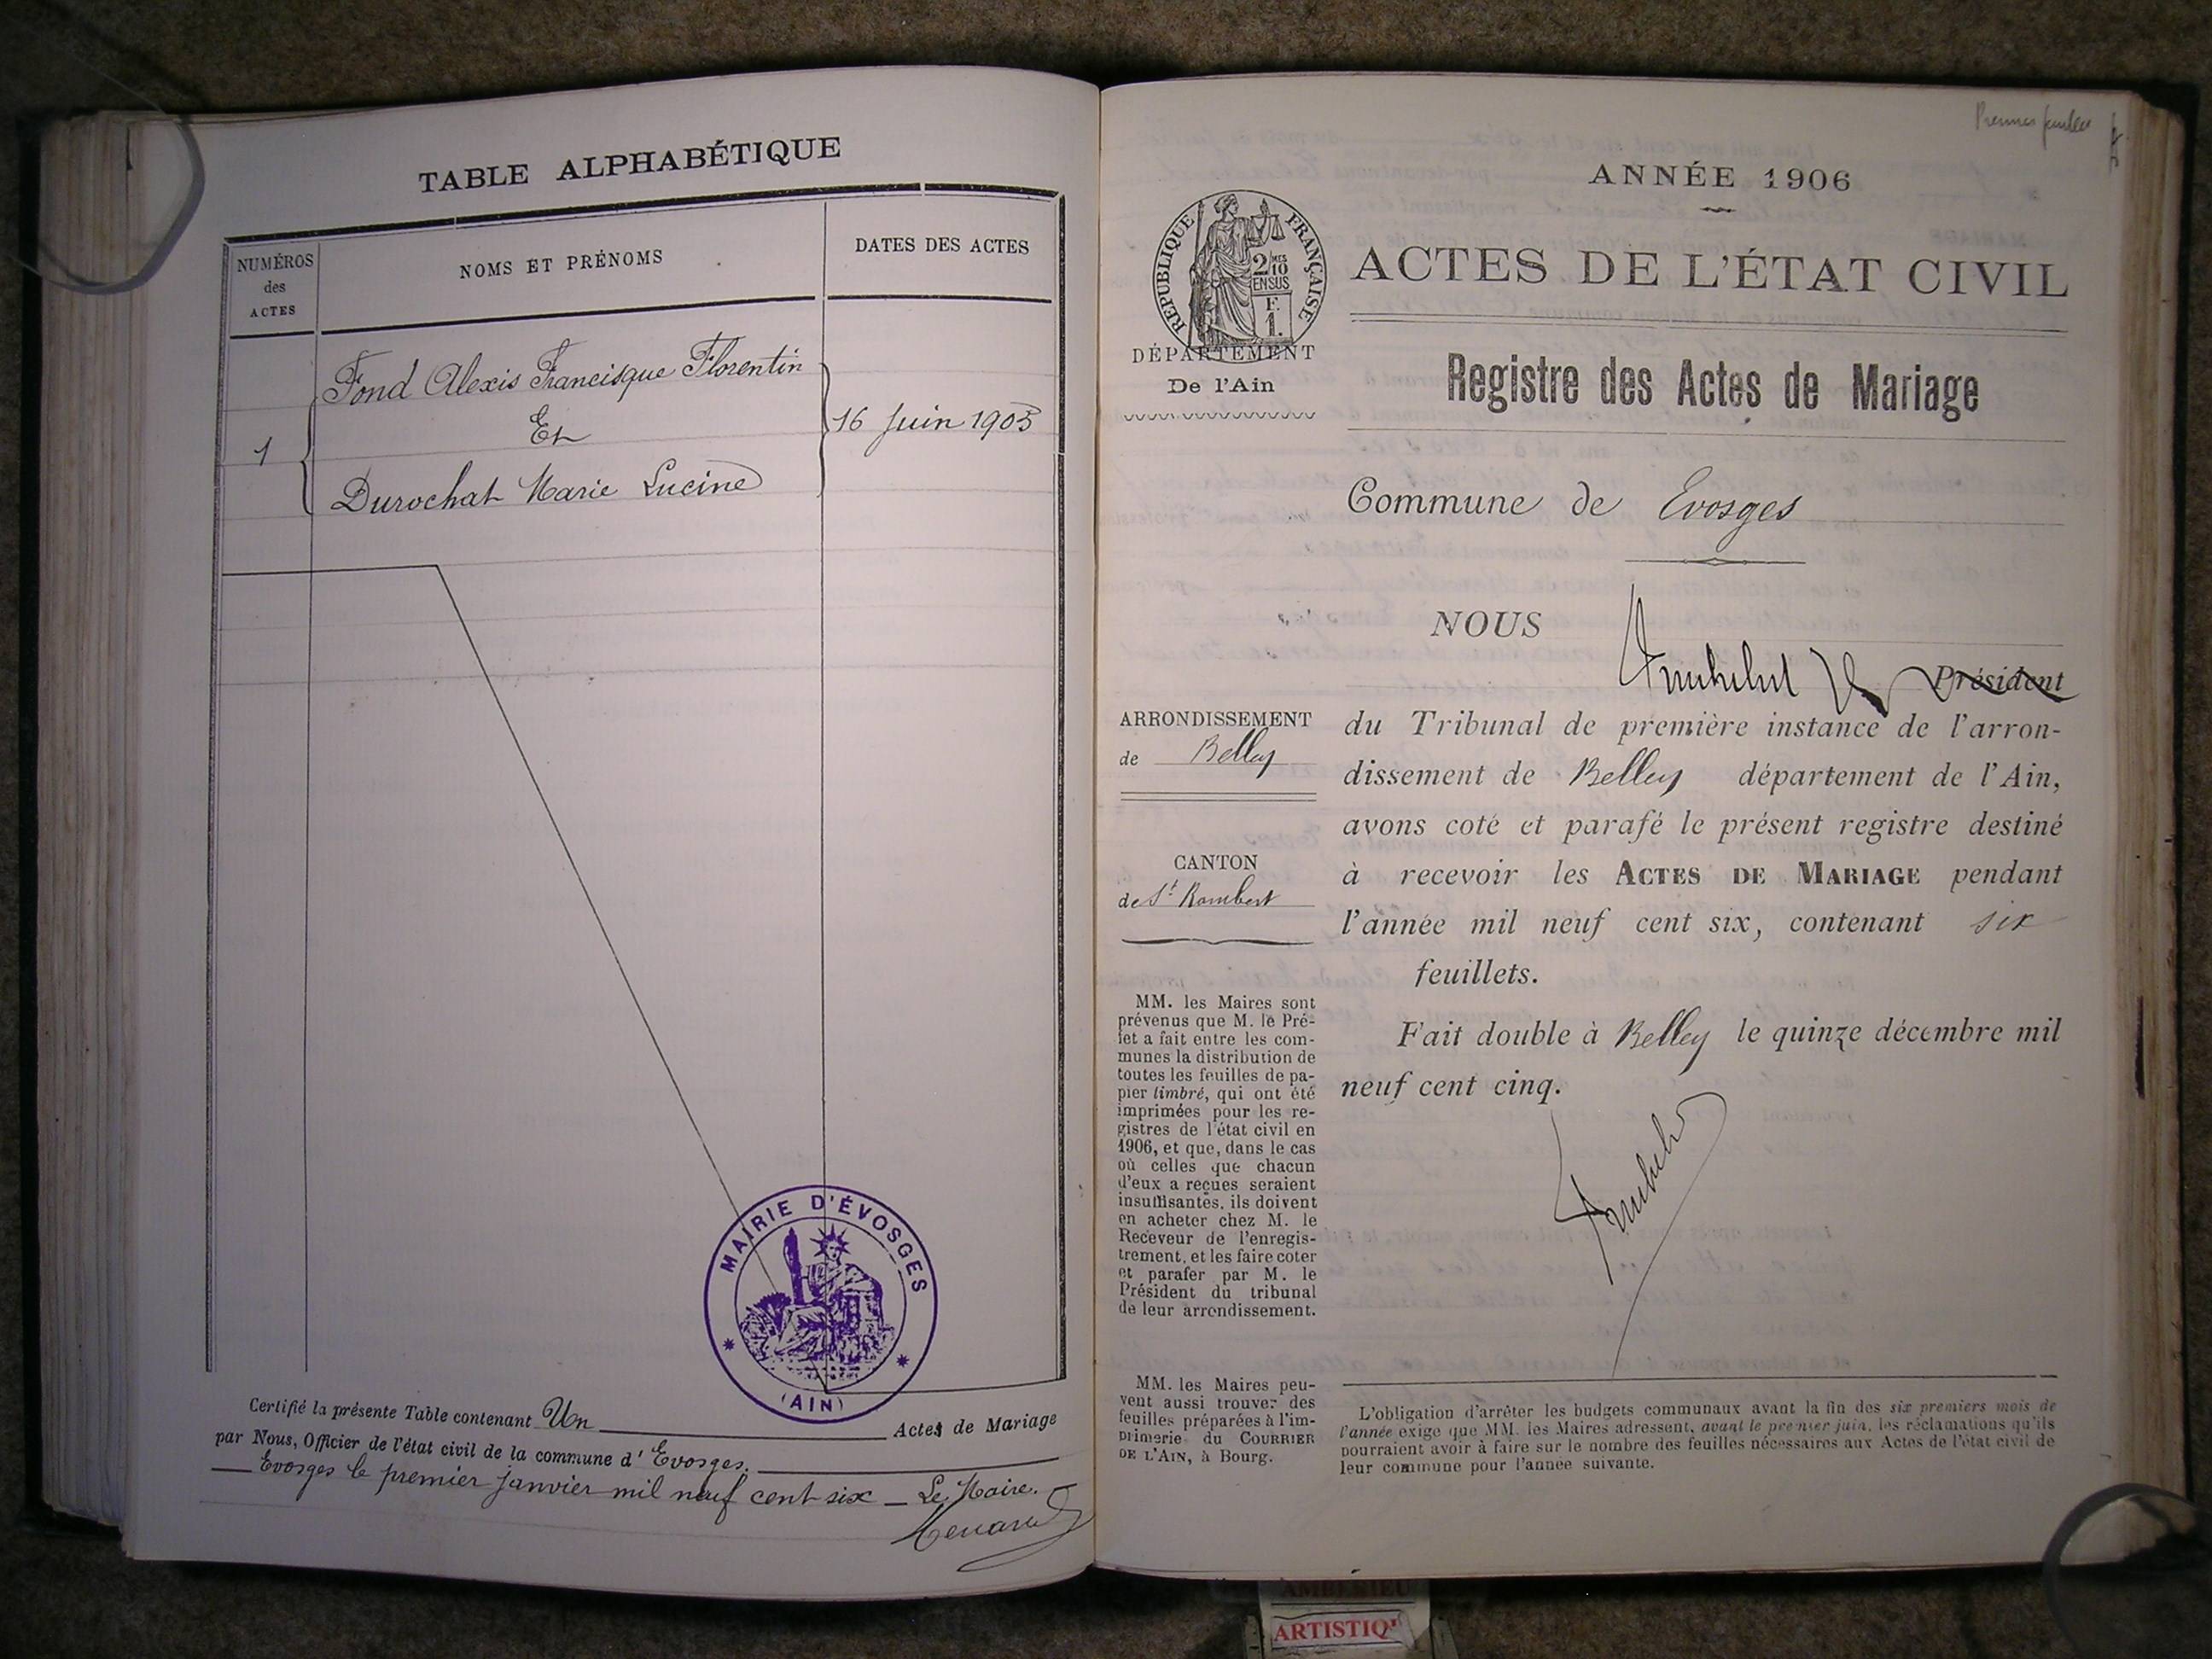 TABLE ALPHABÉTIQUE
NUMÉROS
des
ACTES
NOMS ET PRÉNOMS
DATES DES ACTES
1
Fond Alexis Francisque Florentin
Et
Durochat Marie Lucine
16 Juin 1905
MAIRIE D'ÉVOSGES
(AIN)
Certifié la présente Table contenant Un Actes de Mariage
par Nous, Officier de l'état civil de la commune d'Evosges.
Evosges le premier janvier mil neuf cent six _ Le Maire.
ANNÉE 1906
RÉPUBLIQUE FRANÇAISE
2/10
EN SUS
F.
1.
DÉPARTEMENT
De l'Ain
ACTES DE L'ÉTAT CIVIL
Registre des Actes de Mariage
Commune de Evosges
NOUS
Président
du Tribunal de première instance de l'arron-
dissement de Belley département de l'Ain,
avons coté et parafé le présent registre destiné
à recevoir les ACTES DE MARIAGE pendant
l'année mil neuf cent six, contenant six
feuillets.
Fait double à Belley le quinze décembre mil
neuf cent cinq.
ARRONDISSEMENT
de Belley
CANTON
de St Rambert
MM. les Maires sont
prévenus que M. le Pré-
fet a fait entre les com-
munes la distribution de
toutes les feuilles de pa-
pier timbré, qui ont été
imprimées pour les re-
gistres de l'état civil en
1906, et que, dans le cas
où celles que chacun
d'eux a reçues seraient
insuffisantes, ils doivent
en acheter chez M. le
Receveur de l'enregis-
trement, et les faire coter
et parafer par M. le
Président du tribunal
de leur arrondissement.
MM. les Maires peu-
vent aussi trouver des
feuilles préparées à l'im-
primerie du COURRIER
DE L'AIN, à Bourg.
L'obligation d'arrêter les budgets communaux avant la fin des six premiers mois de
l'année exige que MM. les Maires adressent, avant le premier juin, les réclamations qu'ils
pourraient avoir à faire sur le nombre des feuilles nécessaires aux Actes de l'état civil de
leur commune pour l'année suivante.
AMBERIEU
ARTISTIQ